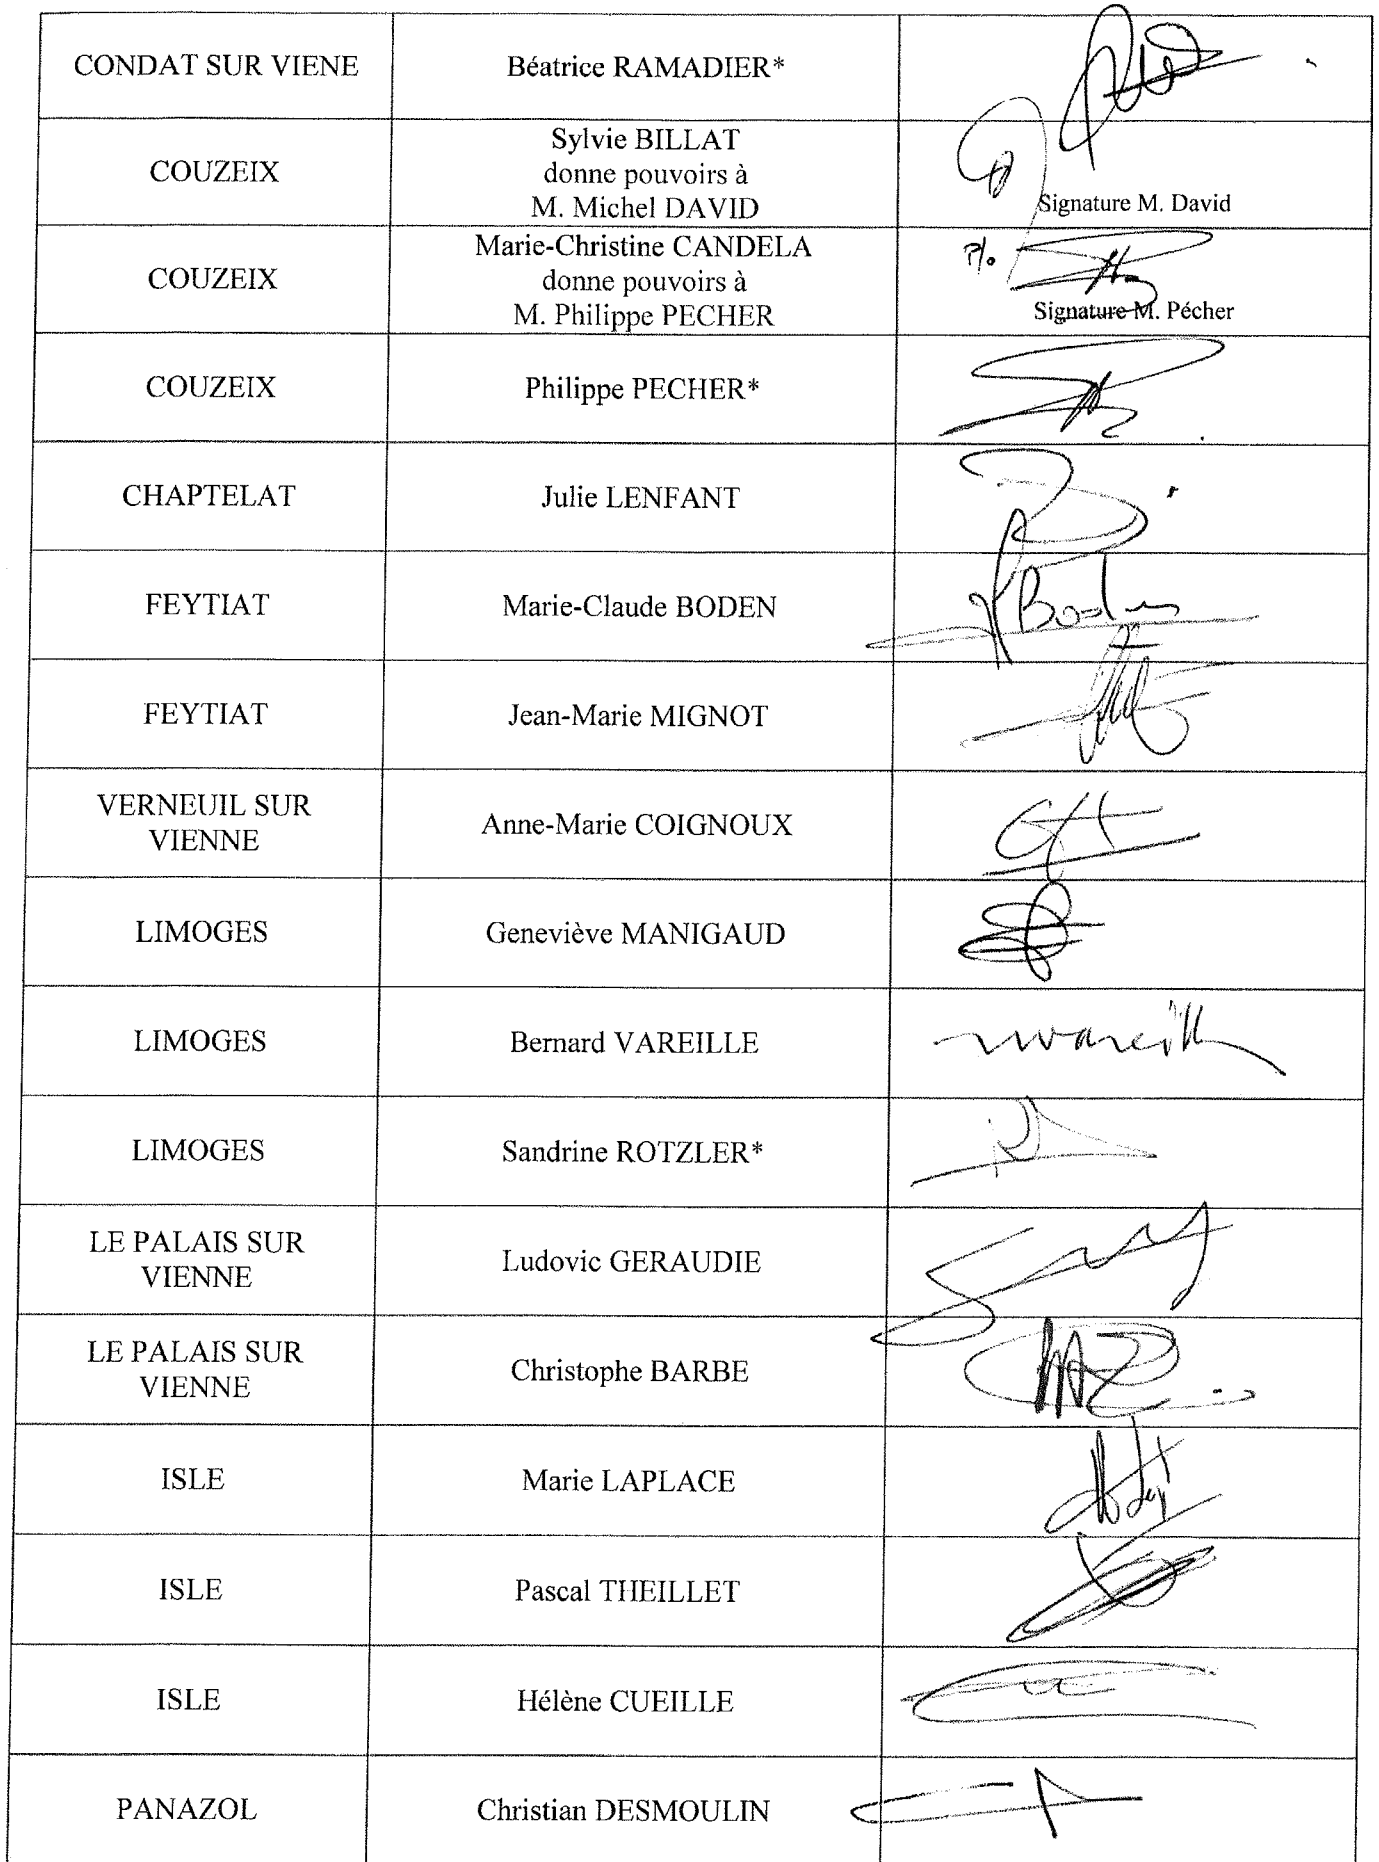 CONDAT SUR VIENE
Béatrice RAMADIER*
COUZEIX
Sylvie BILLAT
donne pouvoirs à
M. Michel DAVID
Signature M. David
COUZEIX
Marie-Christine CANDELA
donne pouvoirs à
M. Philippe PECHER
P/o
Signature M. Pécher
COUZEIX
Philippe PECHER*
CHAPTELAT
Julie LENFANT
FEYTIAT
Marie-Claude BODEN
Boden
FEYTIAT
Jean-Marie MIGNOT
VERNEUIL SUR
VIENNE
Anne-Marie COIGNOUX
LIMOGES
Geneviève MANIGAUD
LIMOGES
Bernard VAREILLE
LIMOGES
Sandrine ROTZLER*
LE PALAIS SUR
VIENNE
Ludovic GERAUDIE
LE PALAIS SUR
VIENNE
Christophe BARBE
ISLE
Marie LAPLACE
ISLE
Pascal THEILLET
ISLE
Hélène CUEILLE
PANAZOL
Christian DESMOULIN